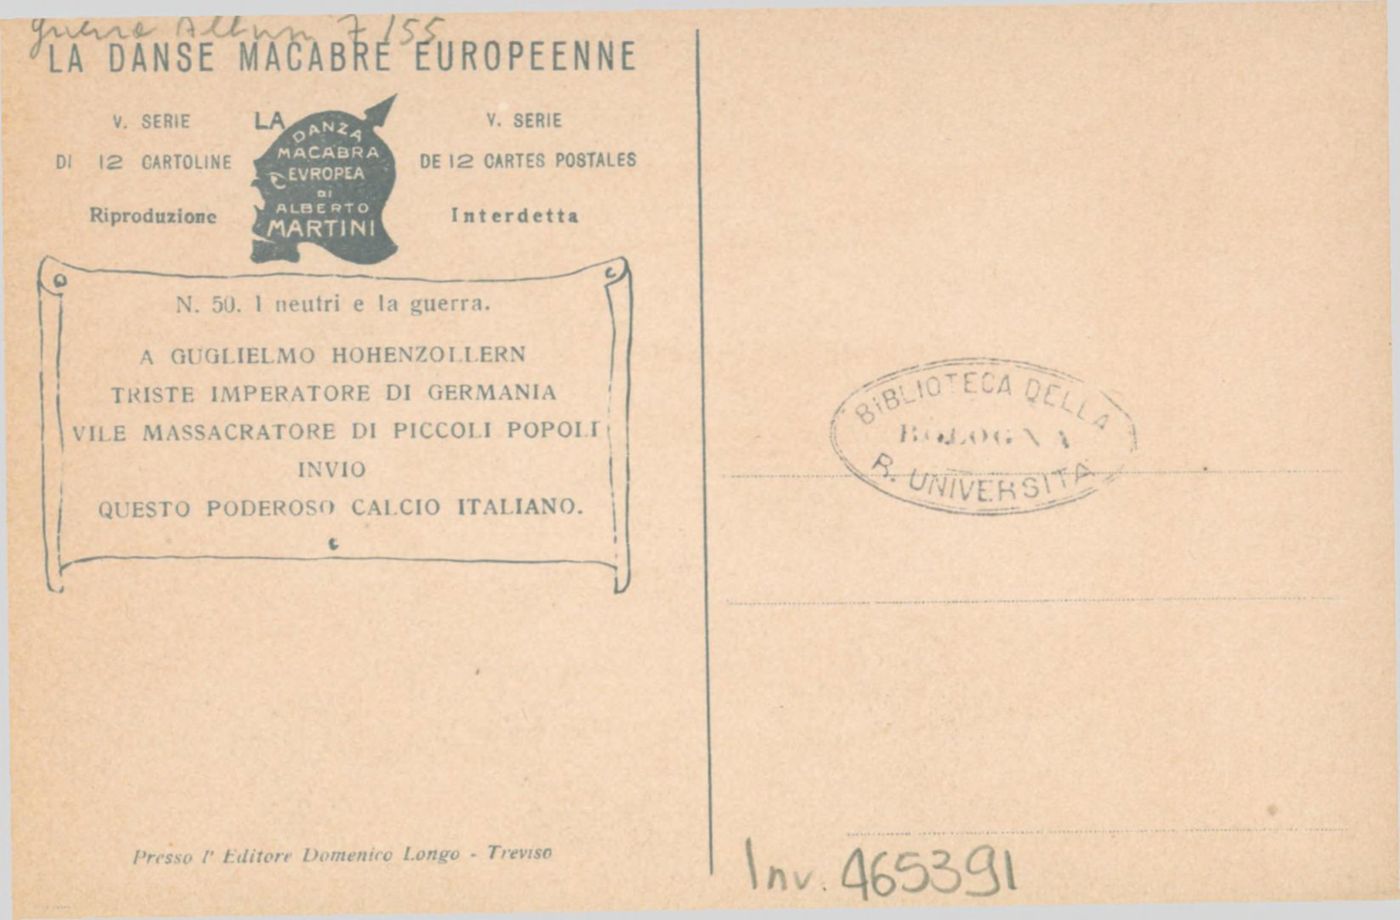 guerra Album 7/55
LA DANSE MACABRE EUROPEENNE
V. SERIE
DI 12 CARTOLINE
Riproduzione
LA
DANZA
MACABRA
EVROPEA
DI
ALBERTO
MARTINI
V. SERIE
DE 12 CARTES POSTALES
Interdetta
N. 50. I neutri e la guerra.
A GUGLIELMO HOHENZOLLERN
TRISTE IMPERATORE DI GERMANIA
VILE MASSACRATORE DI PICCOLI POPOLI
INVIO
QUESTO PODEROSO CALCIO ITALIANO.
Presso l' Editore Domenico Longo - Treviso
BIBLIOTECA DELLA
BOLOGNA
R. UNIVERSITA
Inv. 465391